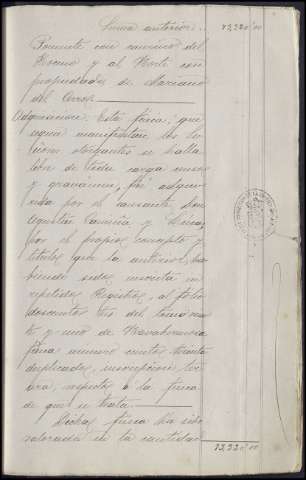 Suma anterior. 13,220'00
Poniente con camino del
Bocino y al Norte con
propiedades de Mariano
del Cerro.
Adquisición. Esta finca, que
segun manifiestan los se-
ñores otorgantes se halla
libre de toda carga
y gravámen, fué adqui-
rida por el causante Don
Agustín y
por el propio concepto y
títulos que la anterior, ha-
biendo sido inscrita en
repetidos Registros, al folio
doscientos tres del tomo
y uno de Navahermosa
finca numero ciento treinta
duplicado, inscripcion ter-
cera, respecto á la finca
de que se trata.
Dicha finca ha sido
valorada en la cantidad
13,220'00